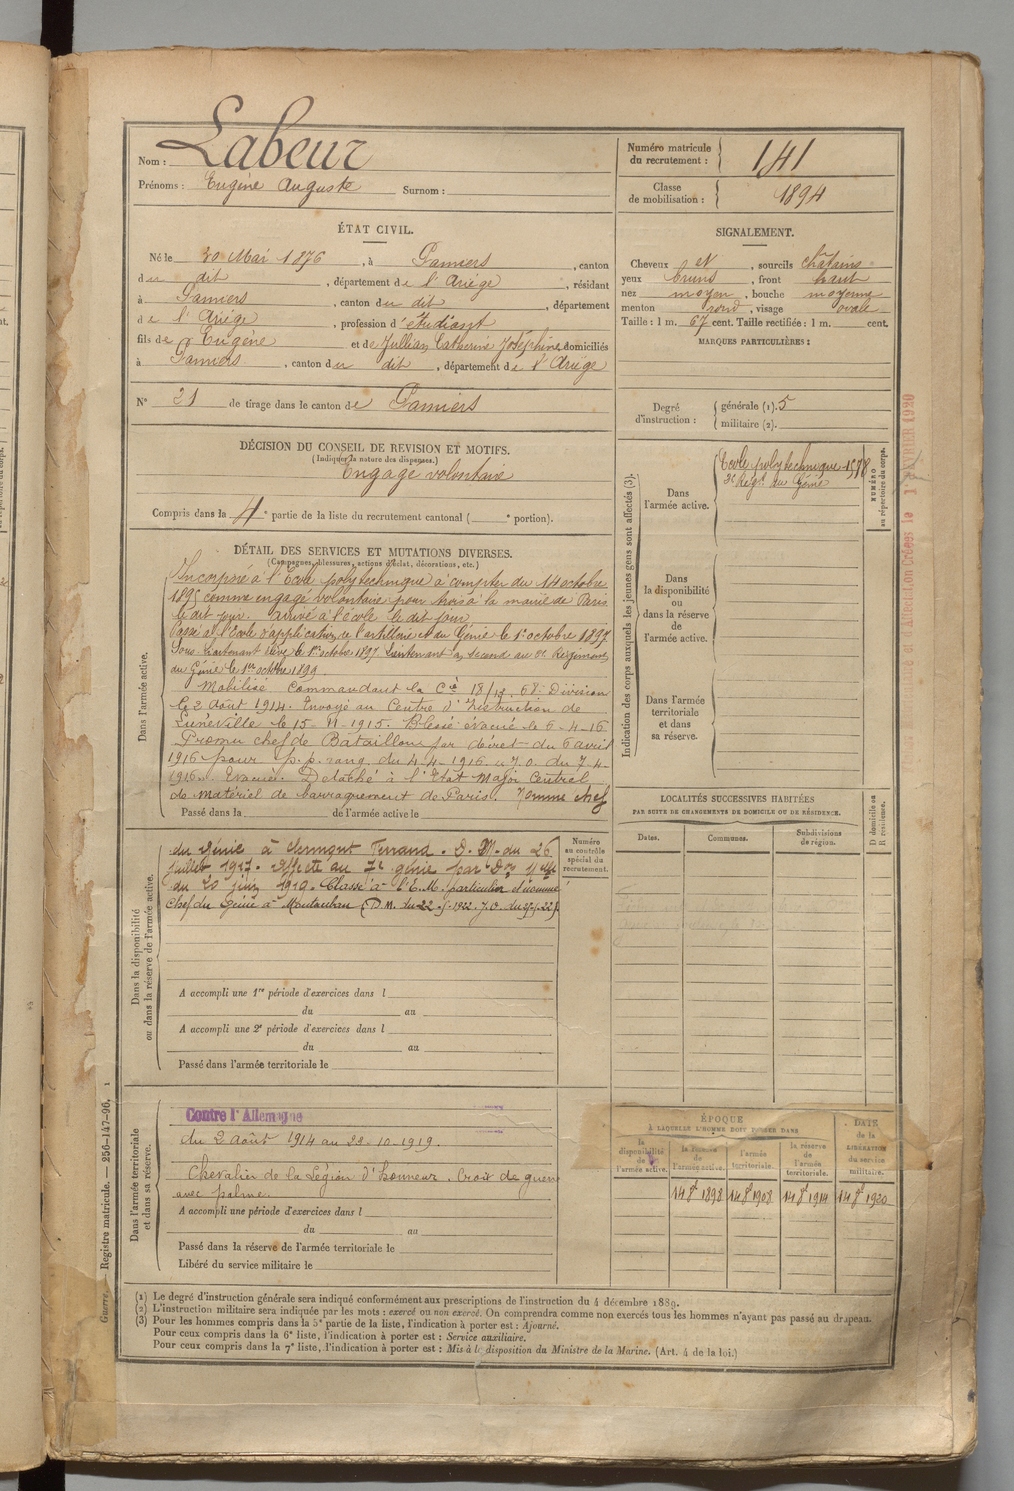 Nom : Labeur
Prénoms : Eugène Auguste Surnom :
Numéro matricule du recrutement : 141
Classe de mobilisation : 1894
ÉTAT CIVIL.
Né le 20 Mai 1876, à Pamiers, canton
du dit, département de l'Ariège, résidant
à Pamiers, canton du dit, département
de l'Ariège, profession d'étudiant
fils de Eugène et de Jullian Catherine Joséphine domiciliés
à Pamiers, canton du dit, département de l'Ariège
N° 21 de tirage dans le canton de Pamiers
SIGNALEMENT.
Cheveux et, sourcils châtains
yeux bruns, front haut
nez moyen, bouche moyenne
menton rond, visage ovale
Taille : 1 m. 67 cent. Taille rectifiée : 1 m. cent.
MARQUES PARTICULIÈRES :
Degré d'instruction : générale (1). 5
militaire (2).
DÉCISION DU CONSEIL DE REVISION ET MOTIFS.
(Indiquer la nature des dispenses.)
Engagé volontaire
Compris dans la 4e partie de la liste du recrutement cantonal ( e portion).
DÉTAIL DES SERVICES ET MUTATIONS DIVERSES.
(Campagnes, blessures, actions d'éclat, décorations, etc.)
Dans l'armée active.
Incorporé à l'École polytechnique à compter du 14 octobre
1895 comme engagé volontaire pour trois à la mairie de Paris
le dit jour. Arrivé à l'école le dit jour
Passé à l'École d'application de l'artillerie et du Génie le 1er octobre 1897
Sous-Lieutenant élève le 1er octobre 1897 Lieutenant en second au Régiment
du Génie le 1er octobre 1899
Mobilisé Commandant la Cie 18/ 68e Division
le 2 août 1914. Envoyé au Centre d'Instruction de
Lunéville le 15-11-1915. Blessé évacué le 6-4-16
Promu chef de Bataillon par décret du 6 avril
1916 pour p.p. rang du 4-4-1916 J.O. du 7-4-
1916. Évacué. Détaché à l'État Major Central
de matériel de barraquement de Paris. Nommé chef
Passé dans la de l'armée active le
Dans la disponibilité ou dans la réserve de l'armée active.
du génie à Clermont Ferrand. D. M. du 26
juillet 1917. Affecté au 7e génie par Don Mlle
du 20 juin 1919. Classé à l'E.M. particulier et nommé
Chef du Génie à Montauban (D.M. du 22 1922 J.O. du 22).
A accompli une 1re période d'exercices dans l
du au
A accompli une 2e période d'exercices dans l
du au
Passé dans l'armée territoriale le
Numéro au contrôle spécial du recrutement.
Dans l'armée territoriale et dans sa réserve.
Contre l'Allemagne
du 2 août 1914 au 22-10-1919.
Chevalier de la Légion d'honneur. Croix de guerre
avec palme.
A accompli une période d'exercices dans l
du au
Passé dans la réserve de l'armée territoriale le
Libéré du service militaire le
Indication des corps auxquels les jeunes gens sont affectés (3).
Dans l'armée active.
École polytechnique 1578
3e Régt du Génie
NUMÉRO au répertoire du corps.
Dans la disponibilité ou dans la réserve de l'armée active.
Dans l'armée territoriale et dans sa réserve.
LOCALITÉS SUCCESSIVES HABITÉES
PAR SUITE DE CHANGEMENTS DE DOMICILE OU DE RÉSIDENCE.
Dates. Communes. Subdivisions de région. D domicile ou R résidence.
ÉPOQUE
À LAQUELLE L'HOMME DOIT PASSER DANS
la disponibilité de l'armée active.
la réserve de l'armée active.
l'armée territoriale.
la réserve de l'armée territoriale.
DATE de la LIBÉRATION du service militaire.
14 8e 1898 14 8e 1908 14 8e 1914 14 8e 1920
(1) Le degré d'instruction générale sera indiqué conformément aux prescriptions de l'instruction du 4 décembre 1889.
(2) L'instruction militaire sera indiquée par les mots : exercé ou non exercé. On comprendra comme non exercés tous les hommes n'ayant pas passé au drapeau.
(3) Pour les hommes compris dans la 5e partie de la liste, l'indication à porter est : Ajourné.
Pour ceux compris dans la 6e liste, l'indication à porter est : Service auxiliaire.
Pour ceux compris dans la 7e liste, l'indication à porter est : Mis à la disposition du Ministre de la Marine. (Art. 4 de la loi.)
Guerre. — Registre matricule. — 256-147-96.